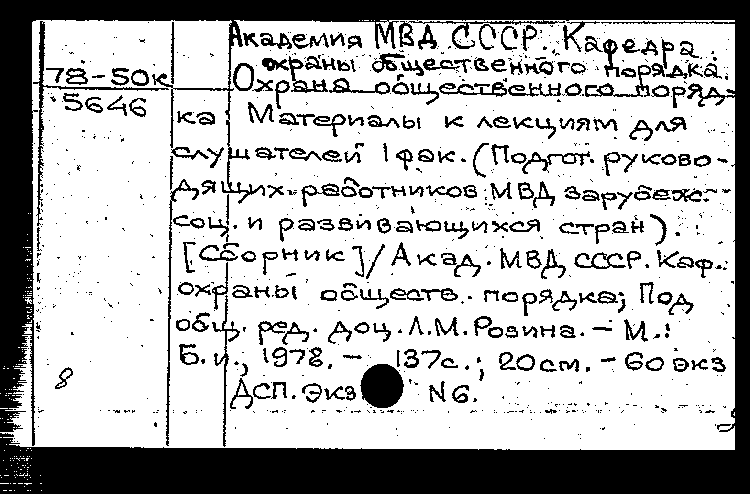 Академия МВД СССР. Кафедра
охраны общественного порядка.
78-50к Охрана общественного поряд-
5646
ка: Материалы к лекциям для
слушателей 1 фак. (Подгот. руково-
дящих работников МВД зарубеж.
соц. и развивающихся стран).
[Сборник] / Акад. МВД СССР. Каф.
охраны обществ. порядка; Под
общ. ред. доц. Л.М. Розина. – М.:
Б.и., 1978. – 137с.; 20см. – 60 экз
8 ДСП. Экз N6.